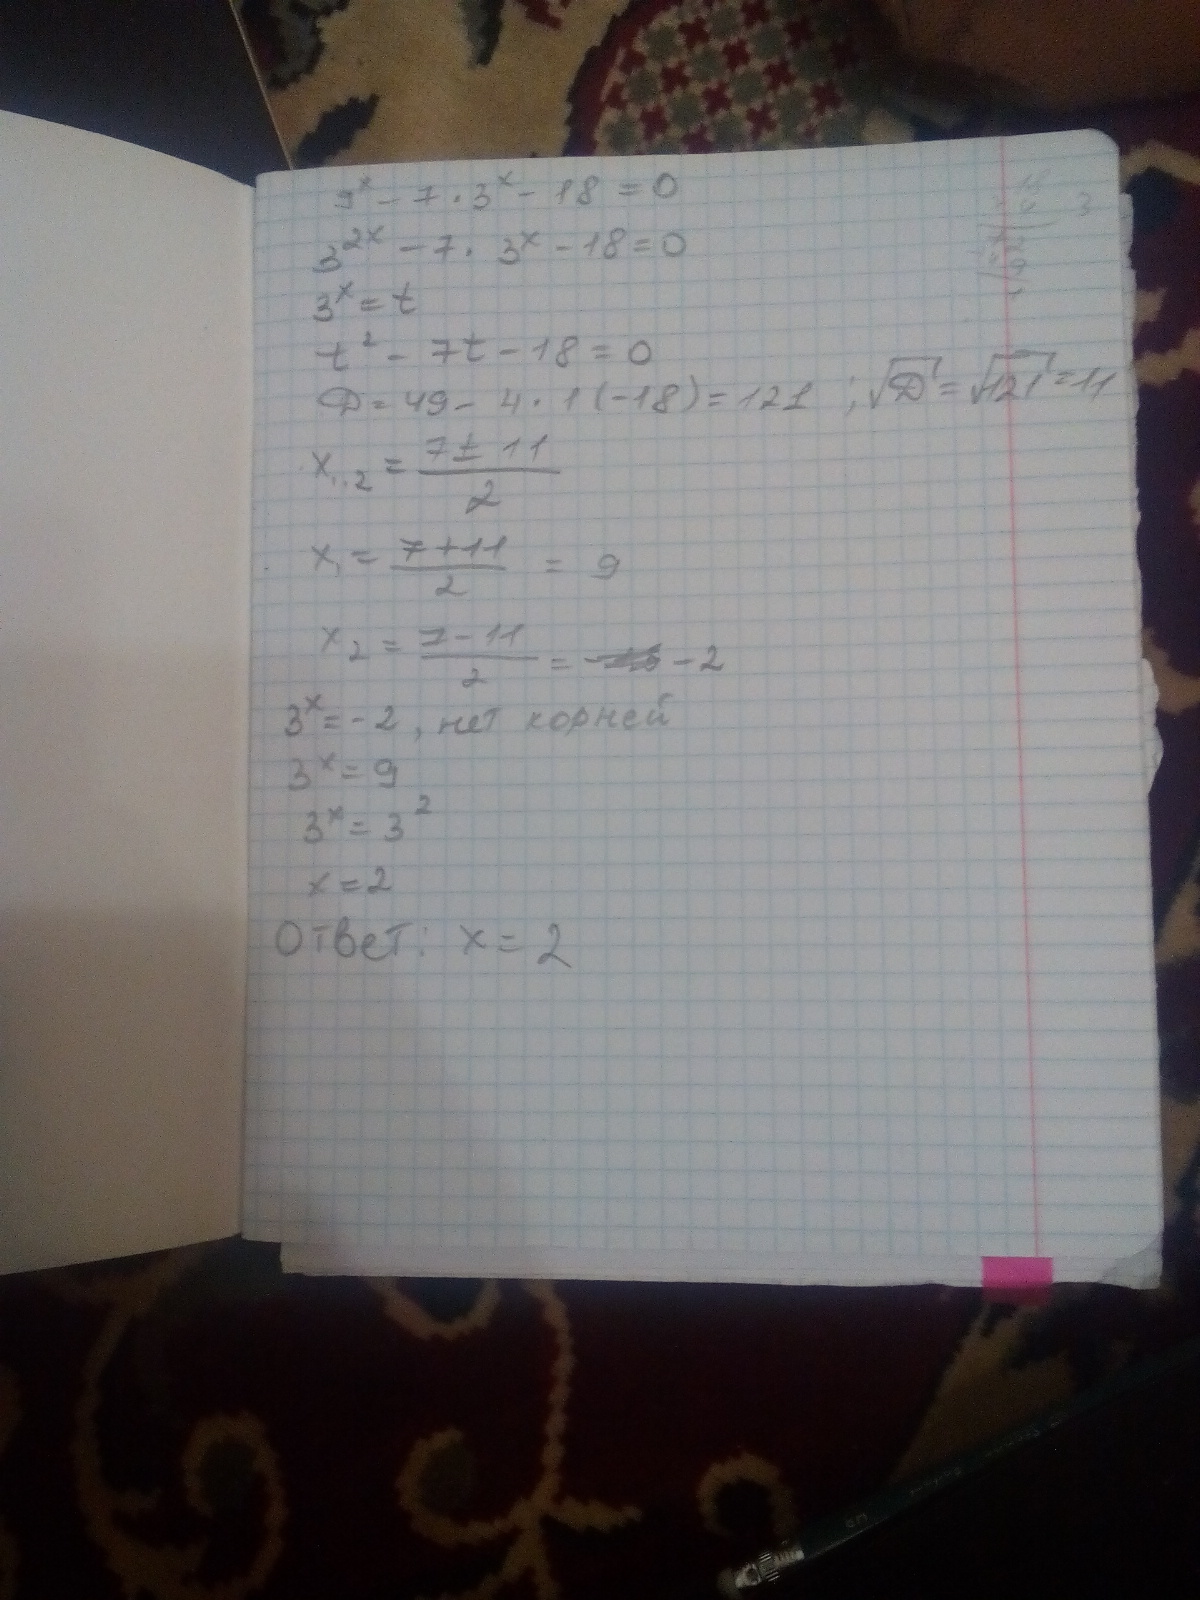 9ˣ - 7 · 3ˣ - 18 = 0
3²ˣ - 7 · 3ˣ - 18 = 0
3ˣ = t
t² - 7t - 18 = 0
D = 49 - 4 · 1 (-18) = 121 ; √D = √121 = 11
x₁,₂ = (7 ± 11) / 2
x₁ = (7 + 11) / 2 = 9
x₂ = (7 - 11) / 2 = - 2
3ˣ = - 2, нет корней
3ˣ = 9
3ˣ = 3²
x = 2
Ответ: x = 2